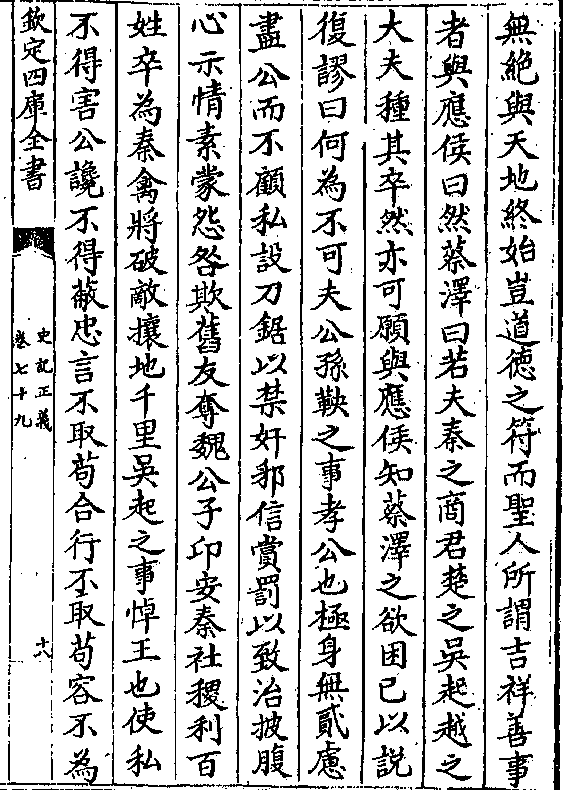 無絶與天地終始豈道徳之符而聖人所謂吉祥善事
者與應侯曰然蔡澤曰若夫秦之商君楚之吳起越之
大夫種其卒然亦可願與應侯知蔡澤之欲困已以説
復謬曰何為不可夫公孫鞅之事孝公也極身無貳慮
盡公而不顧私設刀鋸以禁奸邪信賞罰以致治披腹
心示情素蒙怨咎欺舊友奪魏公子卬安秦社稷利百
姓卒為秦禽將破敵攘地千里吳起之事悼王也使私
不得害公讒不得蔽忠言不取苟合行不取苟容不為
欽定四庫全書
史記正義
卷七十九
十八